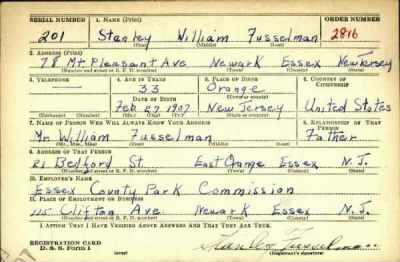 SERIAL NUMBER 1. NAME (Print) ORDER NUMBER
201 Stanley William Fusselman 2816
(First) (Middle) (Last)
2. ADDRESS (Print)
78 Mt Pleasant Ave. Newark Essex New Jersey
(Number and street or R. F. D. number) (Town) (County) (State)
3. TELEPHONE 4. AGE IN YEARS 5. PLACE OF BIRTH 6. COUNTRY OF CITIZENSHIP
— 33 Orange
DATE OF BIRTH (Town or county)
Feb 27 1907 New Jersey United States
(Exchange) (No.) (Mo.) (Day) (Yr.) (State or country)
7. NAME OF PERSON WHO WILL ALWAYS KNOW YOUR ADDRESS 8. RELATIONSHIP OF THAT PERSON
Mr. William Fusselman Father
(Mr., Mrs., Miss) (First) (Middle) (Last)
9. ADDRESS OF THAT PERSON
21 Bedford St. East Orange Essex N. J.
(Number and street or R. F. D. number) (Town) (County) (State)
10. EMPLOYER'S NAME
Essex County Park Commission
11. PLACE OF EMPLOYMENT OR BUSINESS
115 Clifton Ave. Newark Essex N. J.
(Number and street or R. F. D. number) (Town) (County) (State)
I AFFIRM THAT I HAVE VERIFIED ABOVE ANSWERS AND THAT THEY ARE TRUE.
REGISTRATION CARD
D. S. S. Form 1 (Registrant's signature)